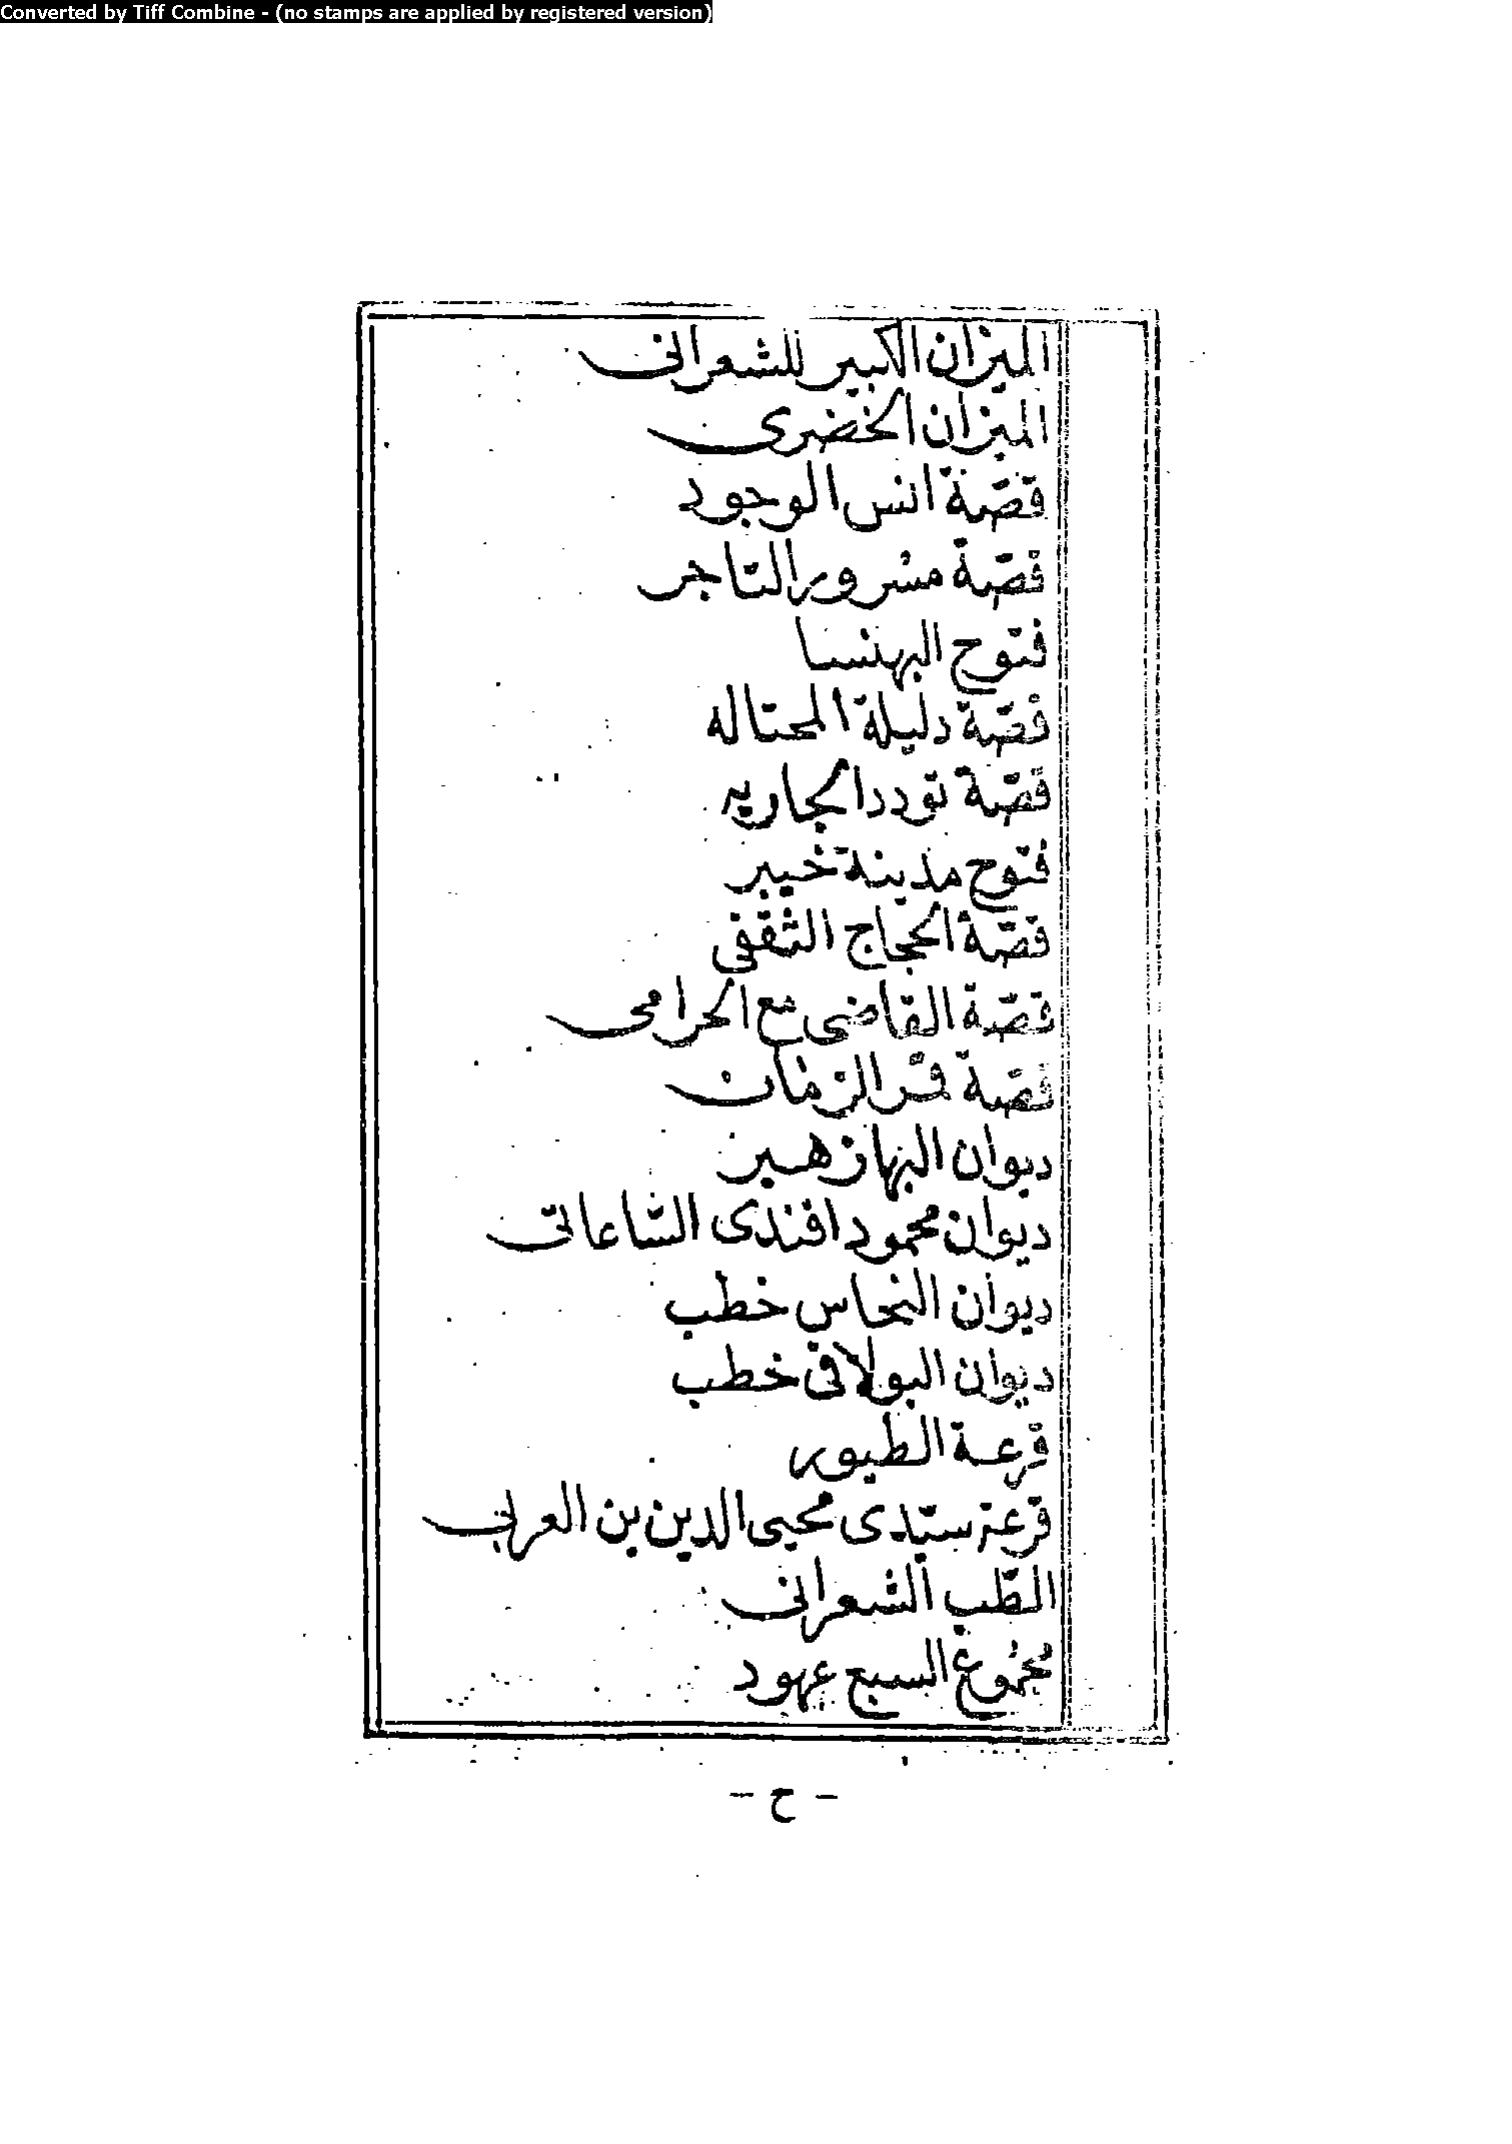 Converted by Tiff Combine - (no stamps are applied by registered version)
الميزان الكبير للشعرانى
الميزان الخضرى
قصّة انس الوجود
قصّة مسرور التاجر
فتوح البهنسا
قصّة دليلة المحتاله
قصّة تودد الجاريه
فتوح مدينة خيبر
قصّة الحجاج الثقفى
قصّة القاضى مع الحرامى
قصّة قمر الزمان
ديوان البهازهير
ديوان محمود افندى السّاعاتى
ديوان النحاس خطب
ديوان البولاقى خطب
قرعة الطيور
قرعة سيّدى محيى الدين بن العربى
الطّب الشعرانى
مجموع السبع عهود
- ح -